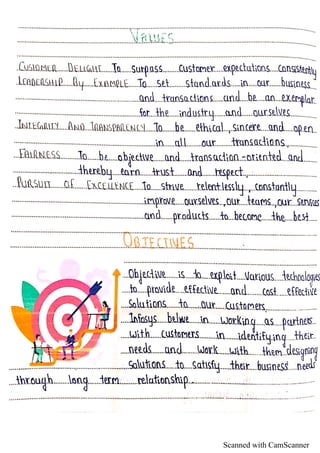 VALUES
CUSTOMER DELIGHT To surpass customer expectations consistently
LEADERSHIP By EXAMPLE To set standards in our business
and transactions and be an exemplar
for the industry and ourselves
INTEGRITY AND TRANSPARENCY To be ethical, sincere and open
in all our transactions,
FAIRNESS To be objective and transaction-oriented and
thereby earn trust and respect,
PURSUIT OF EXCELLENCE To strive relentlessly, constantly
improve ourselves, our teams, our services
and products to become the best
OBJECTIVES
Objective is to exploit various technologies
to provide effective and cost effective
solutions to our customers,
Infosys belive in working as partners
with customers in identifying their
needs and work with them designing
solutions to satisfy their business needs
through long term relationship.
Scanned with CamScanner